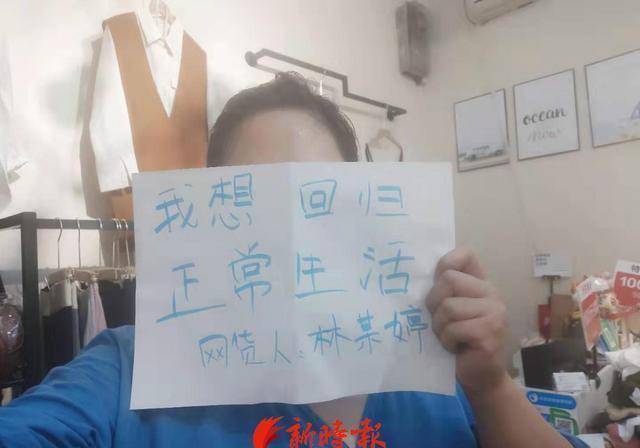 我想回归
正常生活
网贷人:林某婷
ocean
100
新時報